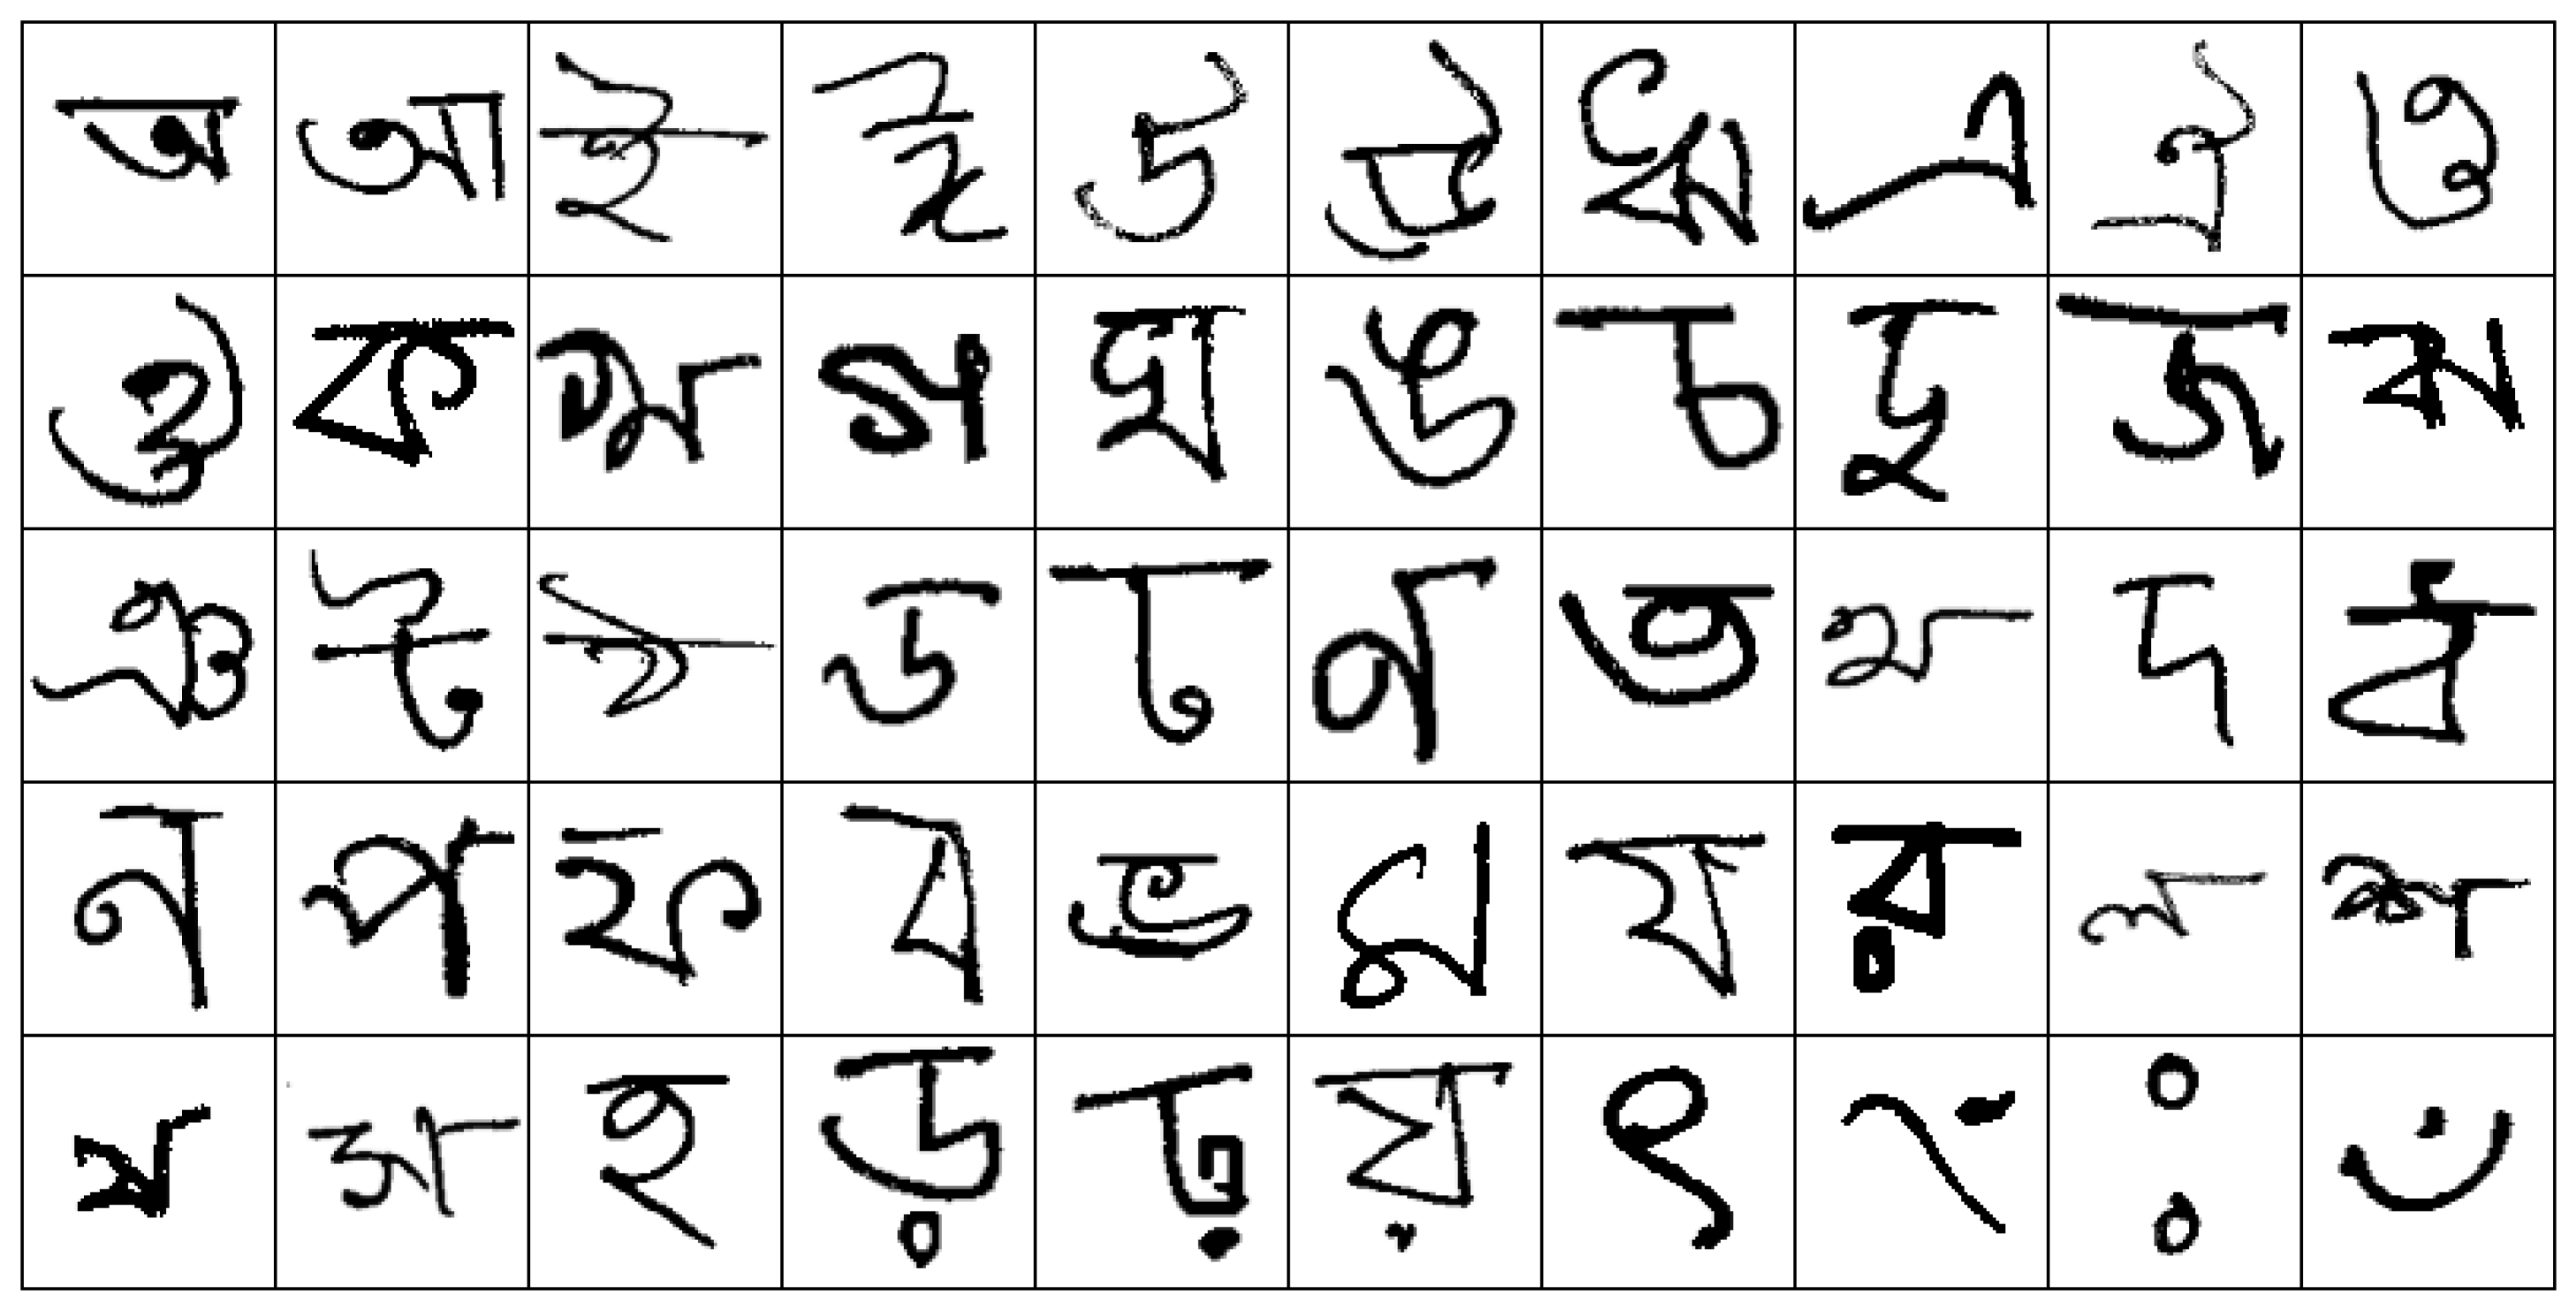 অ আ ই ঈ উ ঊ ঋ এ ঐ ও
ঔ ক খ গ ঘ ঙ চ ছ জ ঝ
ঞ ট ঠ ড ঢ ণ ত থ দ ধ
ন প ফ ব ভ ম য র ল শ
ষ স হ ড় ঢ় য় ৎ ং ঃ ঁ